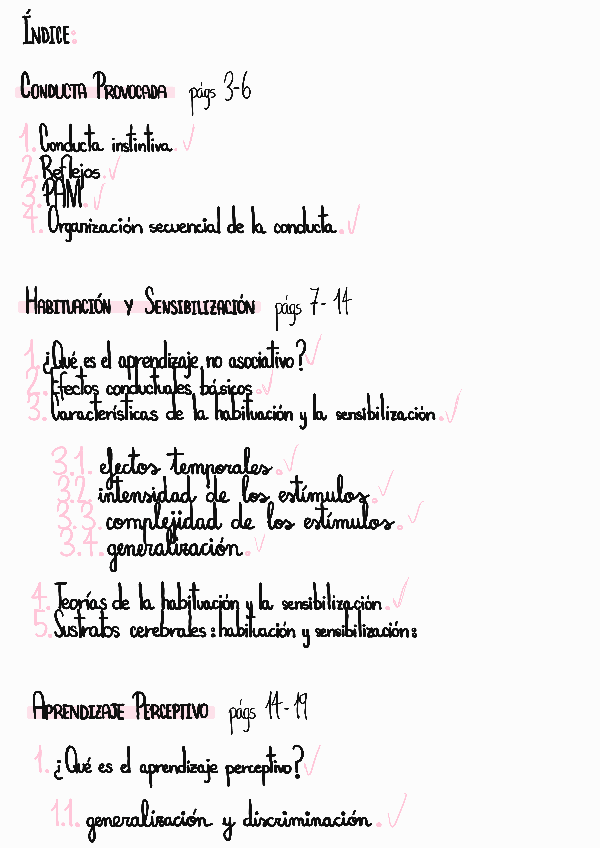 ÍNDICE:
CONDUCTA PROVOCADA págs 3-6
1. Conducta instintiva. ✓
2. Reflejos. ✓
3. PAM. ✓
4. Organización secuencial de la conducta. ✓
HABITUACIÓN Y SENSIBILIZACIÓN págs 7-14
1. ¿Qué es el aprendizaje no asociativo? ✓
2. Efectos conductuales básicos. ✓
3. Características de la habituación y la sensibilización. ✓
3.1. efectos temporales. ✓
3.2. intensidad de los estímulos. ✓
3.3. complejidad de los estímulos. ✓
3.4. generalización. ✓
4. Teorías de la habituación y la sensibilización. ✓
5. Sustratos cerebrales: habituación y sensibilización:
APRENDIZAJE PERCEPTIVO págs 14-19
1. ¿Qué es el aprendizaje perceptivo? ✓
1.1. generalización y discriminación. ✓